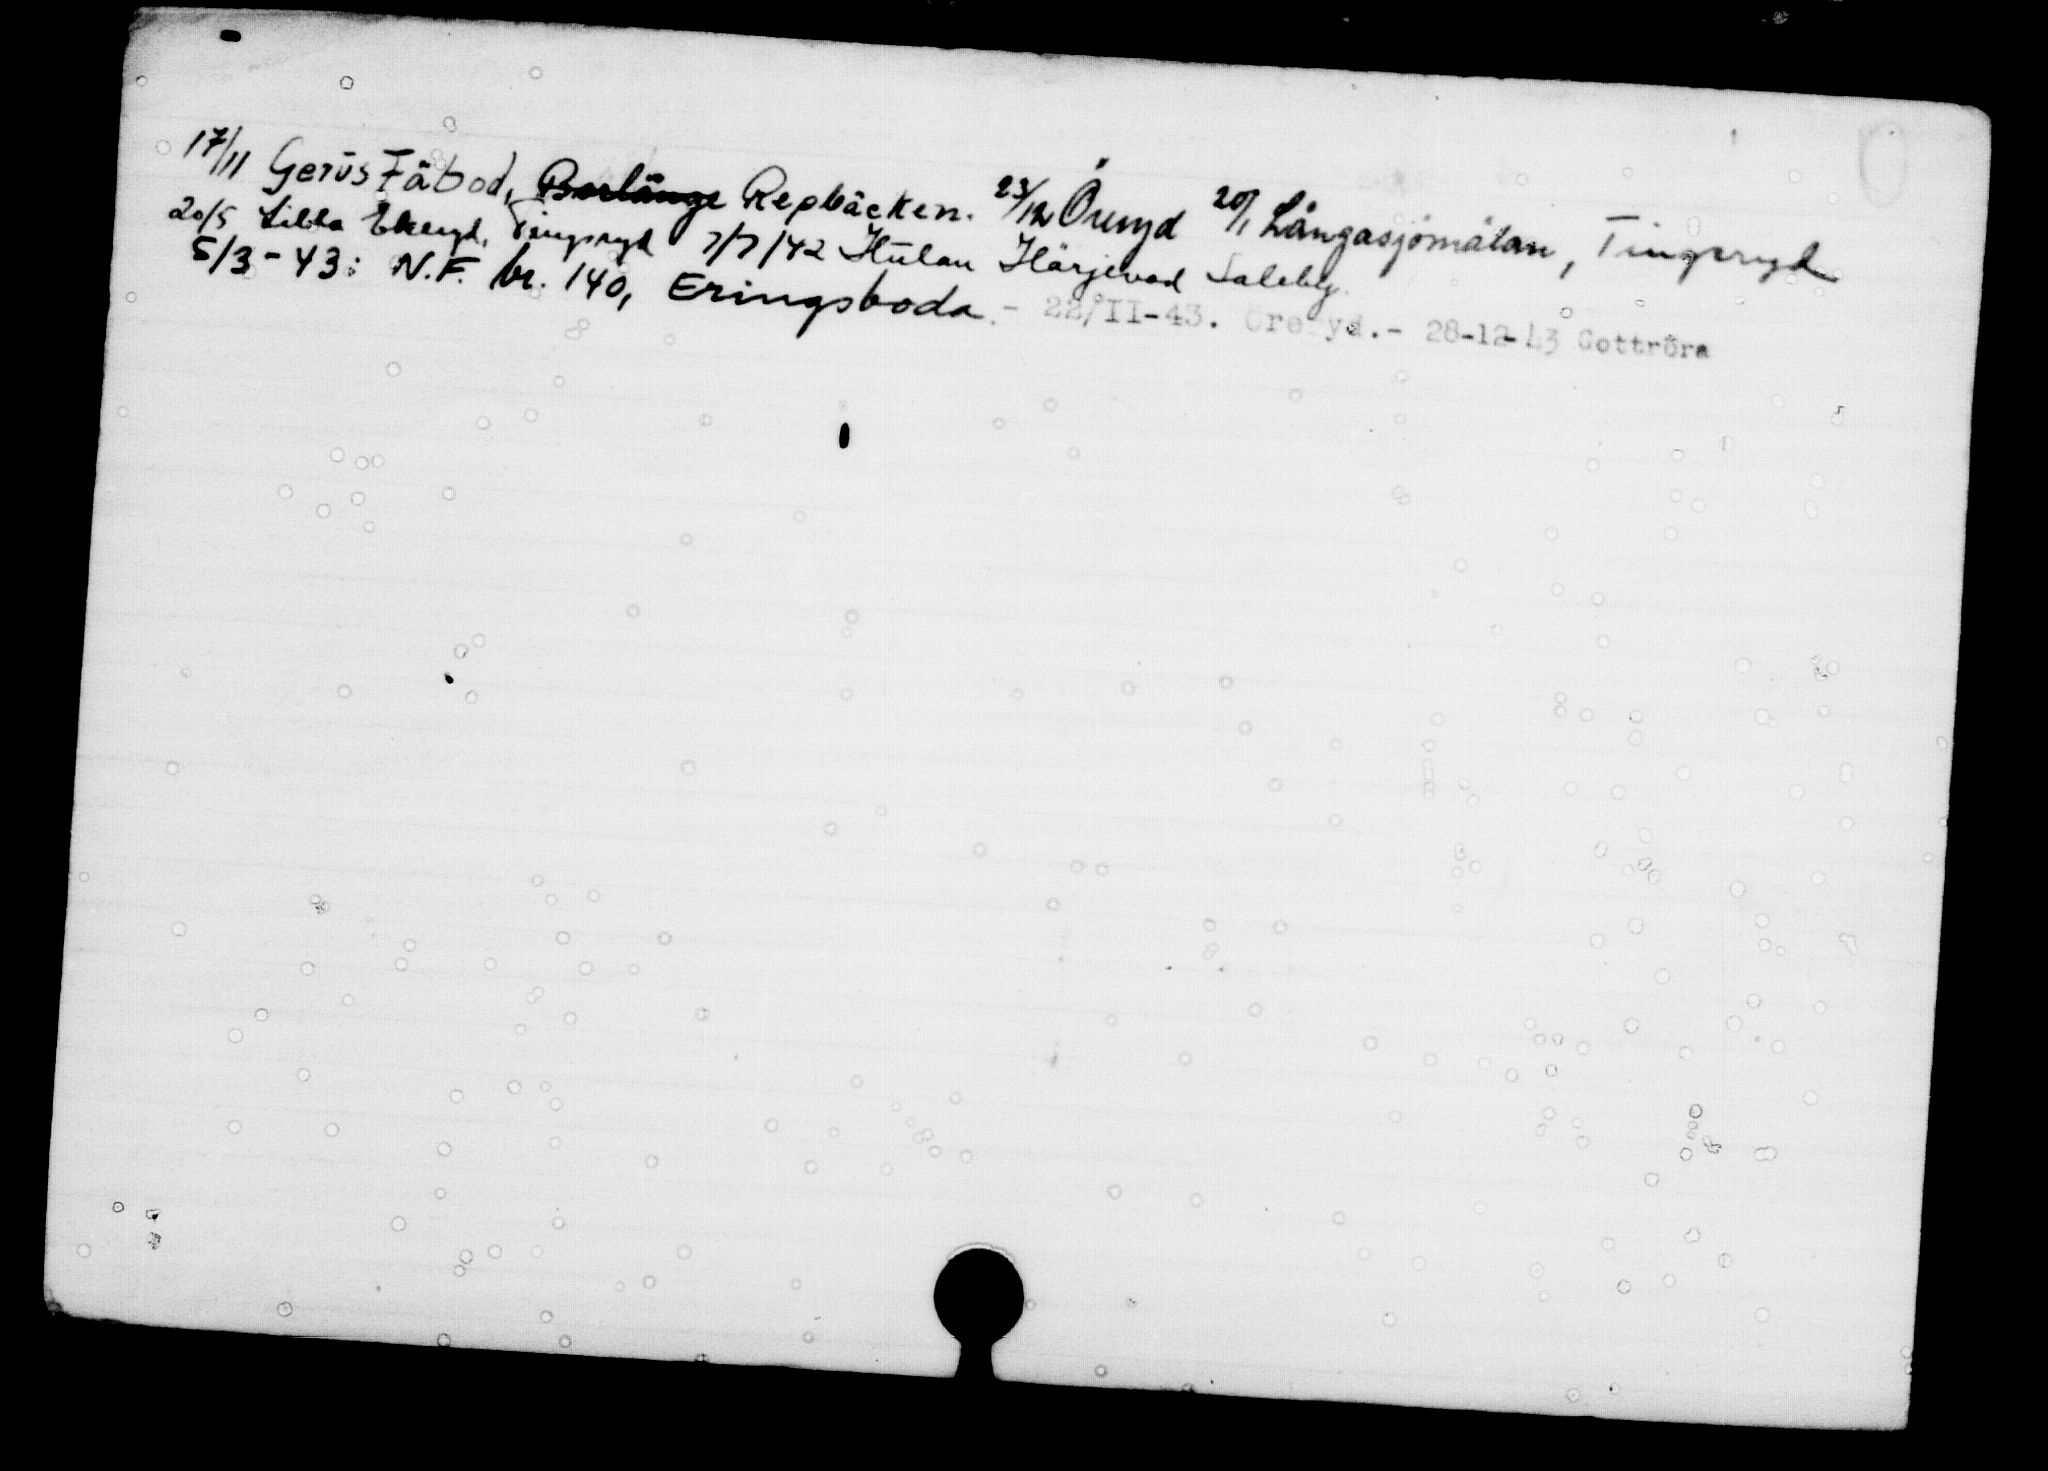 17/11 Gerus Fäbod, Borlänge Repbäcken. 23/12 Öreryd 20/1 Långasjömåla, Tingsryd
20/5 Lilla Ekeryd, Tingsryd 7/7/42 Hulan Härjevad Saleby
5/3-43: N.F. br. 140, Eringsboda.- 22/II-43. Öreryd.- 28-12-43 Gottröra